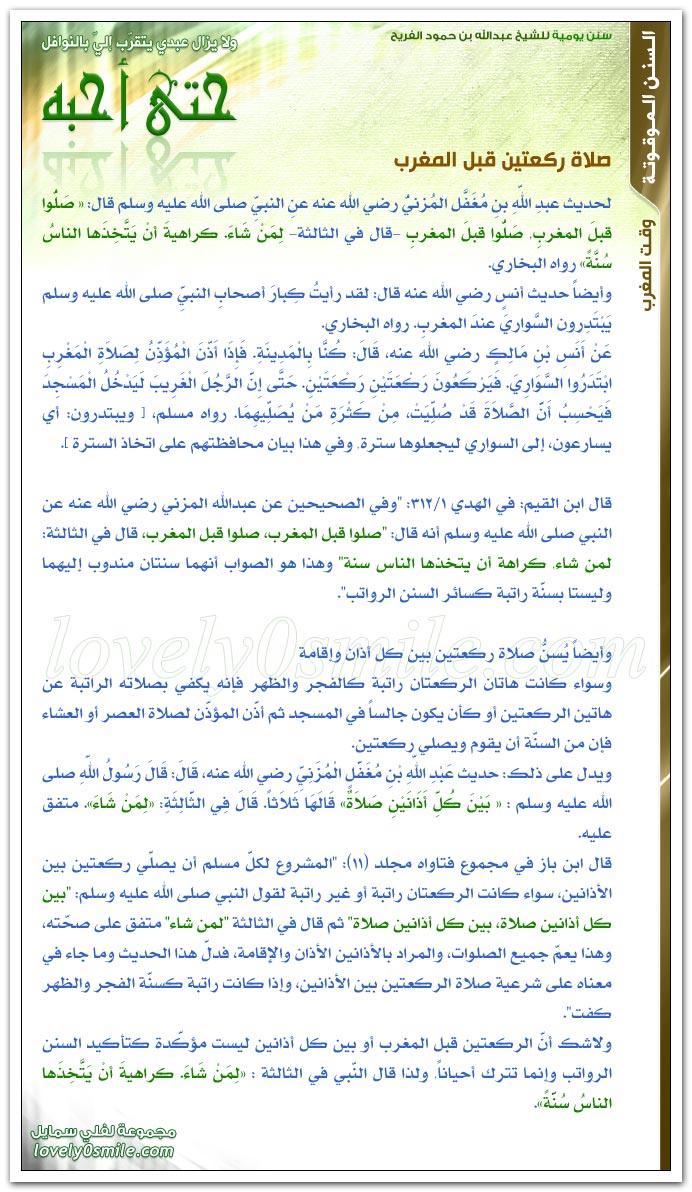 سنن يومية للشيخ عبدالله بن حمود الفريح
ولا يزال عبدي يتقرَّب إليَّ بالنوافل
حتى أحبه
السنن الموقوتة
وقت المغرب
صلاة ركعتين قبل المغرب
لحديث عبدِ اللَّهِ بنِ مُغَفَّل المُزنيِّ رضي الله عنه عنِ النبيِّ صلى الله عليه وسلم قال: « صَلُّوا
قبلَ المغربِ، صَلُّوا قبلَ المغربِ –قال في الثالثة– لِمَنْ شاءَ، كراهيةَ أنْ يَتَّخِذَها الناسُ
سُنَّةً» رواه البخاري.
وأيضاً حديث أنسٍ رضي الله عنه قال: لقد رأيتُ كِبارَ أصحابِ النبيِّ صلى الله عليه وسلم
يَبْتَدِرون السَّواريَ عندَ المغربِ. رواه البخاري.
عَنْ أَنَسِ بْنِ مَالِكٍ رضي الله عنه، قَالَ: كُنَّا بِالْمَدِينَةِ، فَإِذَا أَذّنَ الْمُؤَذِّنُ لِصَلاَةِ الْمَغْرِبِ
ابْتَدَرُوا السَّوَارِيَ، فَيَرْكَعُونَ رَكْعَتَيْنِ رَكْعَتَيْنِ، حَتَّى إِنَّ الرَّجُلَ الْغَرِيبَ لَيَدْخُلُ الْمَسْجِدَ
فَيَحْسِبُ أَنَّ الصَّلاَةَ قَدْ صُلِّيَتْ، مِنْ كَثْرَةِ مَنْ يُصَلِّيهِمَا. رواه مسلم، [ ويبتدرون: أي
يسارعون، إلى السواري ليجعلوها سترة، وفي هذا بيان محافظتهم على اتخاذ السترة ].
قال ابن القيم: في الهدي ٣١٢/١: "وفي الصحيحين عن عبدالله المزني رضي الله عنه عن
النبي صلى الله عليه وسلم أنه قال: "صلوا قبل المغرب، صلوا قبل المغرب، قال في الثالثة:
لمن شاء، كراهة أن يتخذها الناس سنة" وهذا هو الصواب أنهما سنتان مندوب إليهما
وليستا بسنّة راتبة كسائر السنن الرواتب".
lovely0smile.com
وأيضاً يُسنُّ صلاة ركعتين بين كل أذان وإقامة
وسواء كانت هاتان الركعتان راتبة كالفجر والظهر فإنه يكفي بصلاته الراتبة عن
هاتين الركعتين أو كأن يكون جالساً في المسجد ثم أذّن المؤذّن لصلاة العصر أو العشاء
فإن من السنّة أن يقوم ويصلي ركعتين.
ويدل على ذلك: حديث عَبْدِ اللّهِ بْنِ مُغَفّلٍ الْمُزَنِيِّ رضي الله عنه، قَالَ: قَالَ رَسُولُ اللّهِ صلى
الله عليه وسلم : « بَيْنَ كُلِّ أَذَانَيْنِ صَلاَةٌ» قَالَهَا ثَلاَثاً. قَالَ فِي الثَّالِثَةِ: «لِمَنْ شَاءَ». متفق
عليه.
قال ابن باز في مجموع فتاواه مجلد (١١): "المشروع لكلّ مسلم أن يصلّي ركعتين بين
الأذانين، سواء كانت الركعتان راتبة أو غير راتبة لقول النبي صلى الله عليه وسلم: "بين
كل أذانين صلاة، بين كل أذانين صلاة" ثم قال في الثالثة "لمن شاء" متفق على صحّته،
وهذا يعمّ جميع الصلوات، والمراد بالأذانين الأذان والإقامة، فدلّ هذا الحديث وما جاء في
معناه على شرعية صلاة الركعتين بين الأذانين، وإذا كانت راتبة كسنّة الفجر والظهر
كفت".
ولاشك أنّ الركعتين قبل المغرب أو بين كل أذانين ليست مؤكّدة كتأكيد السنن
الرواتب وإنما تترك أحياناً، ولذا قال النّبي في الثالثة : «لِمَنْ شَاءَ، كراهيةَ أنْ يَتَّخِذَها
الناسُ سُنّةً».
مجموعة لفلي سمايل
lovely0smile.com